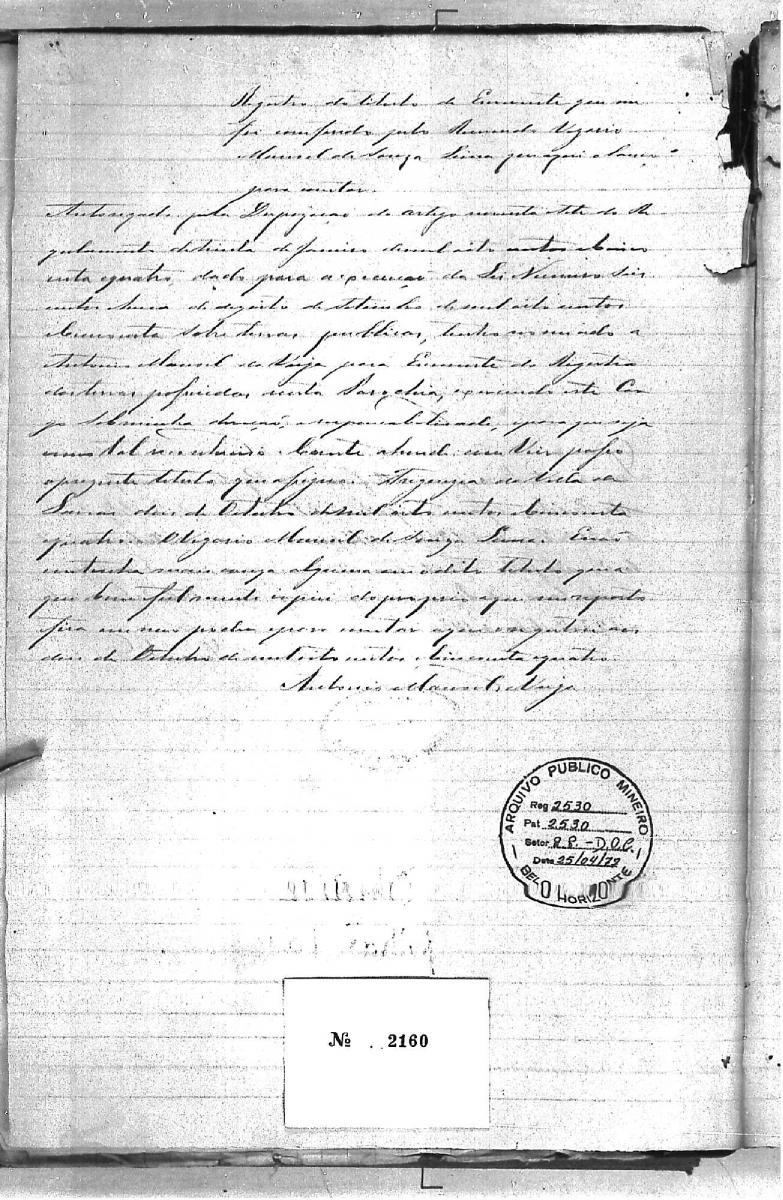 Registro do titulo de Escrevente que me
foi conferido pelo Reverendo Vigario
Manoel de Souza Lima que aqui o lancei
para constar.
Autorizado pela Disposiçao do artigo noventa sete do Re
gulamento de trinta de Janeiro de mil oito centos e cinco
enta e quatro, dado para a execução da Lei Numero seis
centos hum de dezoito de Setembro de mil oito centos
e Cincoenta sobre terras publicas, tenho nomeado a
Antonio Manoel da Veiga para Escrevente do Registro
das terras possuidas nesta Parochia, exercendo este Car
go sob minha direcção, e responsabilidade, e para que seja
como tal reconhecido Competente mente lhe passo
o prezente titulo que assigno. Freguezia da
Lavras dois de Outubro de mil oito centos e cincoenta
e quatro. O Vigario Manoel de Souza Lima. E não
continha mais couza alguma em o dito titulo que a
qui bem fielmente copiei do proprio a que me reporto
fica em meu poder, e para constar aqui registrei aos
dois de Outubro de mil oito centos e cincoenta e quatro.
Antonio Manoel Veiga
ARQUIVO PUBLICO MINEIRO
Reg 2530
Pat 2530
Setor R.P. - D.O.C.
Data 25/04/79
BELO HORIZONTE
Nº 2160